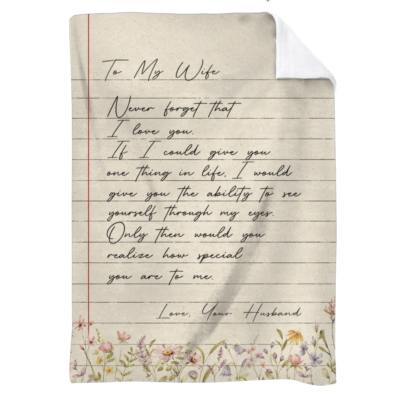 To My Wife
Never forget that
I love you.
If I could give you
one thing in life, I would
give you the ability to see
yourself through my eyes.
Only then would you
realize how special
you are to me.
Love, Your Husband